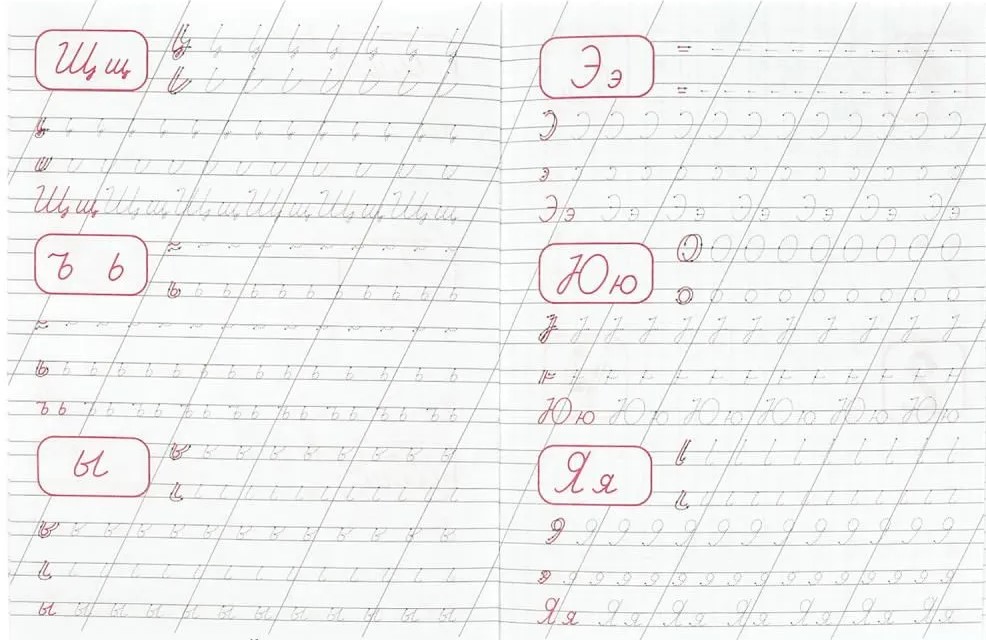 Щ щ
Щщ Щщ Щщ Щщ Щщ Щщ
Ъ ь
Ъь Ъь Ъь Ъь Ъь Ъь Ъь Ъь Ъь
ы
ы ы ы ы ы ы ы ы ы ы ы ы
Э э
Э Э Э Э Э Э Э Э Э Э Э Э
э э э э э э э э э э э э
Ээ Ээ Ээ Ээ Ээ Ээ Ээ
Ю ю
Юю Юю Юю Юю Юю Юю
Я я
Яя Яя Яя Яя Яя Яя Яя